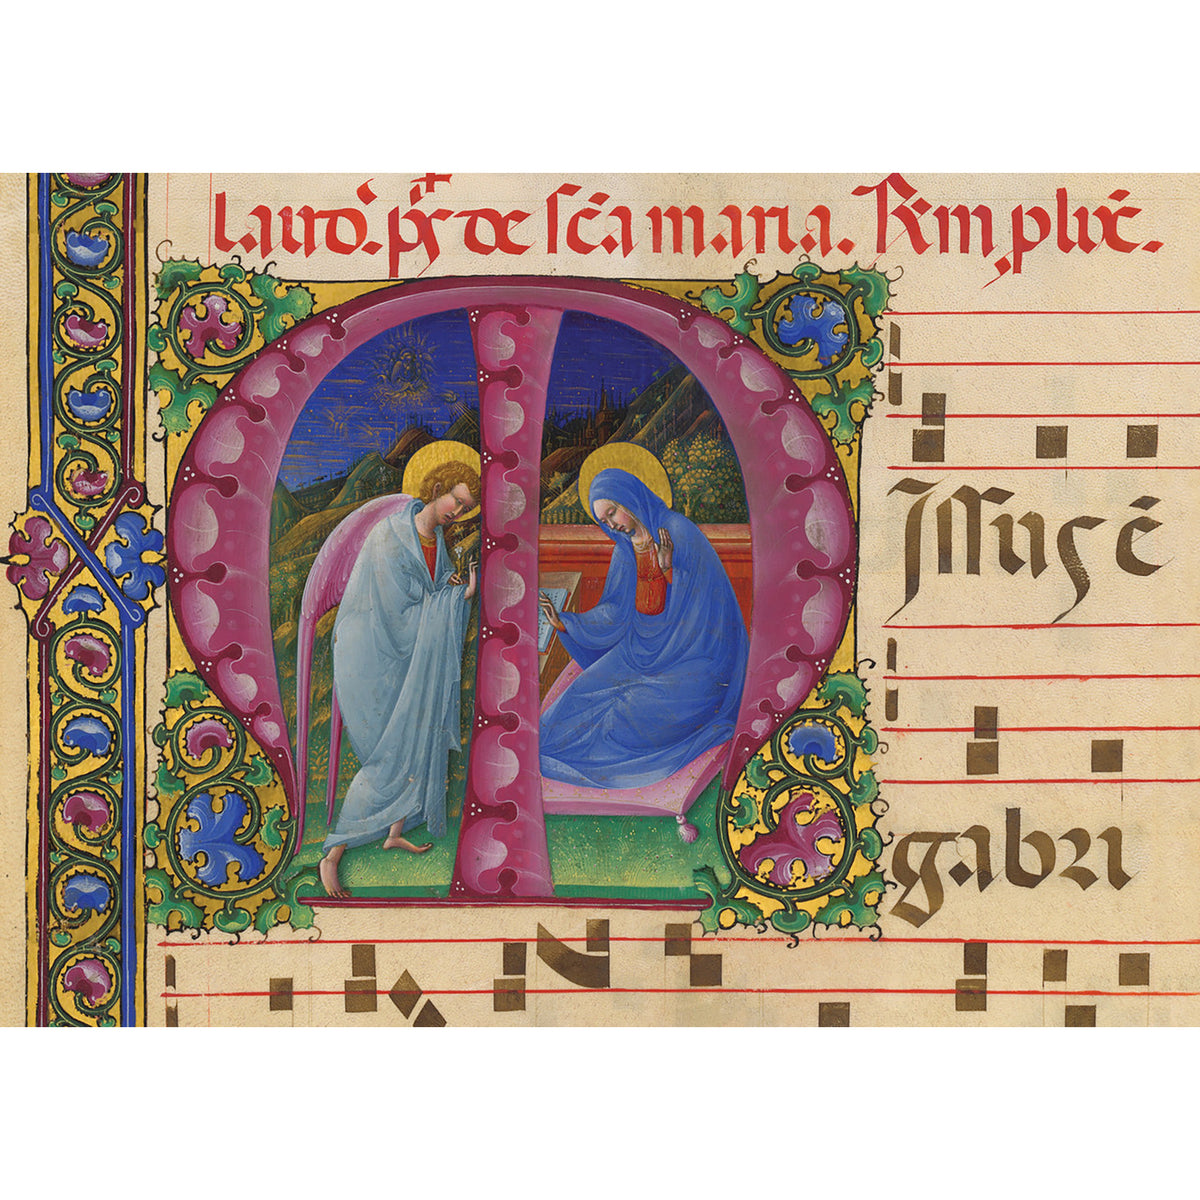 laudꝰ. ps de scā maria. Rem, pluē.
M
issus ē
gabri